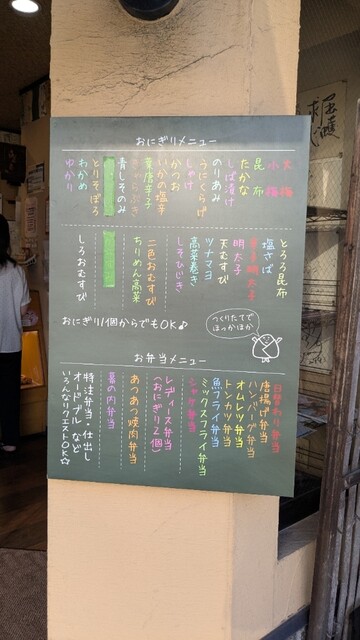 おにぎりメニュー
大梅
小梅
昆布
たかな
しば漬け
のりあみ
うにくらげ
しゃけ
かつお
いかの塩辛
葉唐辛子
きゃらぶき
青しそのみ
とりそぼろ
わかめ
ゆかり
とろろ昆布
塩さば
辛子明太子
明太子
天むすび
ツナマヨ
高菜巻き
しそひじき
二色おむすび
ちりめん高菜
しろおむすび
おにぎり1個からでもOK♪
つくりたてで
ほっかほか
お弁当メニュー
日替わり弁当
唐揚げ弁当
ハンバーグ弁当
オムレツ弁当
トンカツ弁当
魚フライ弁当
ミックスフライ弁当
シャケ弁当
レディース弁当
(おにぎり2個)
あつあつ焼肉弁当
幕の内弁当
特注弁当・仕出し
オードブルなど
いろんなリクエストOK☆